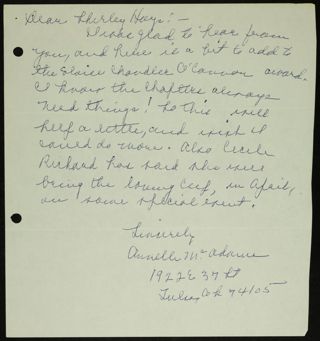 Dear Shirley Hays! -
I was glad to hear from
you, and here is a bit to add to
the Eloise Chandler O'Connor award.
I know the Chapters always
need things! So this will
help a little, and wish I
could do more. Also Cecile
Richard has said she will
bring the loving cup, in April,
on some special event.
Sincerely
Annelle McAdams
1922 E 37 St
Tulsa, Ok 74105